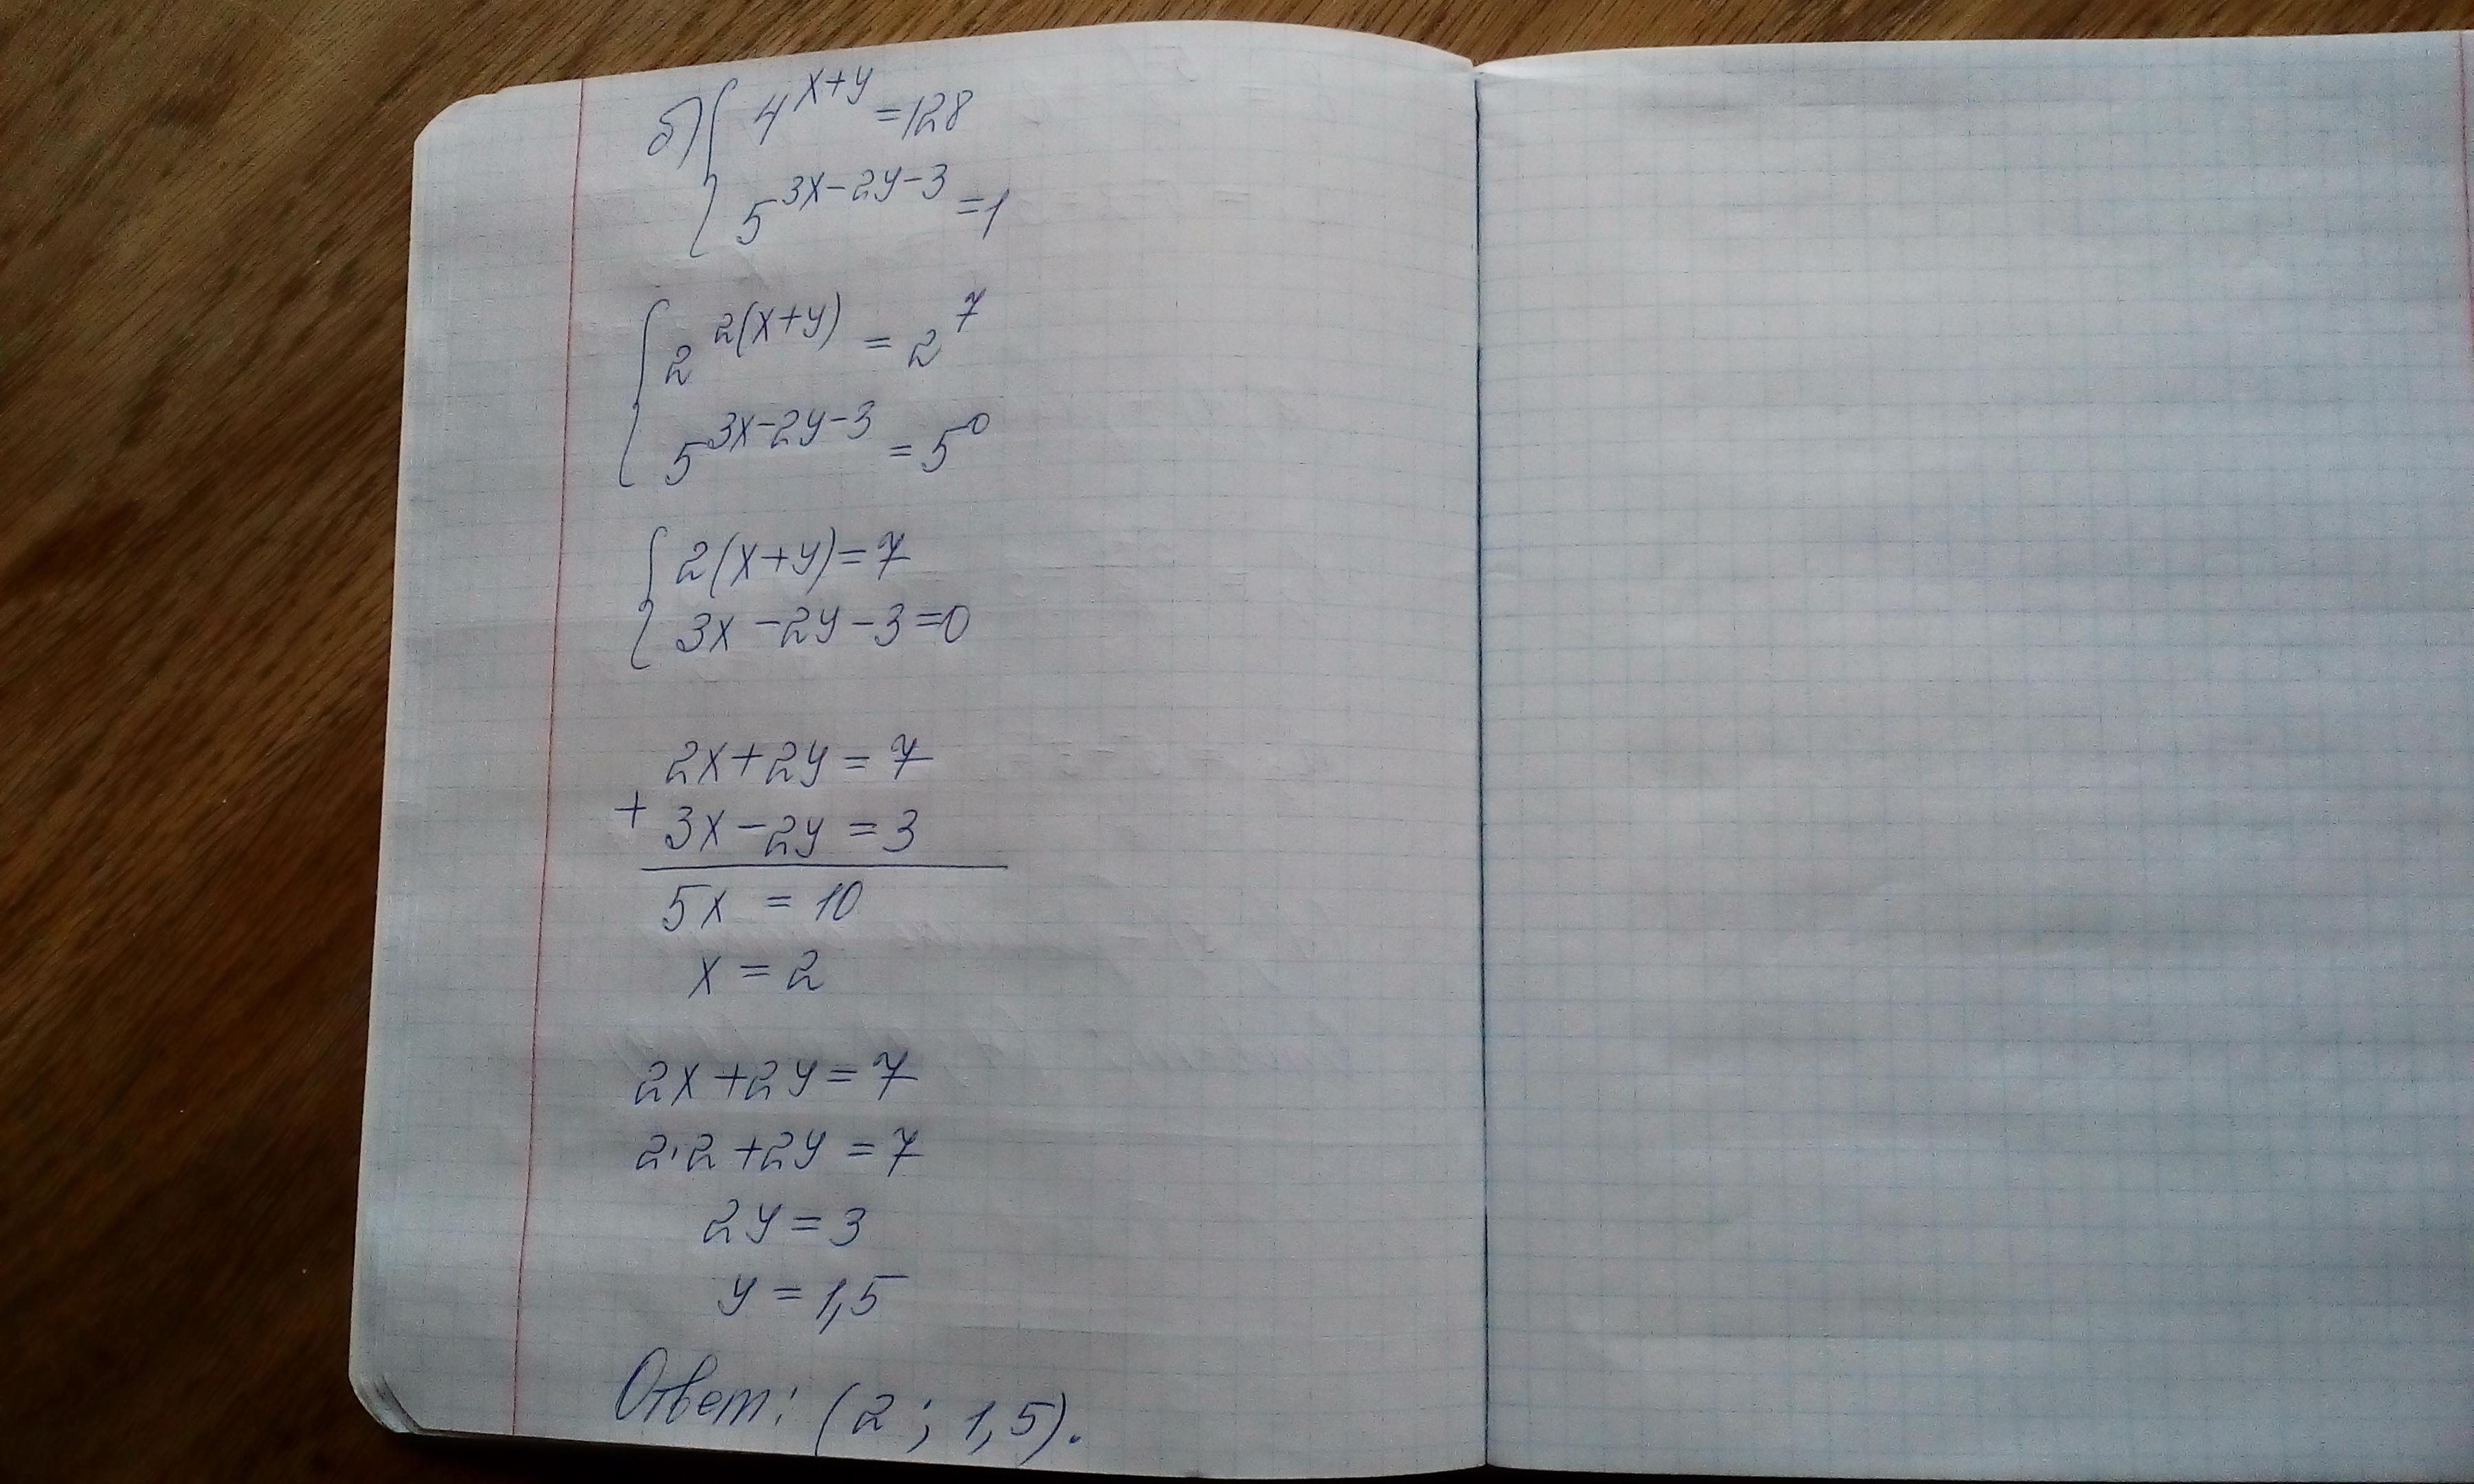 б) { 4^{x+y} = 128
5^{3x-2y-3} = 1
{ 2^{2(x+y)} = 2^7
5^{3x-2y-3} = 5^0
{ 2(x+y) = 7
3x - 2y - 3 = 0
2x + 2y = 7
+ 3x - 2y = 3
5x = 10
x = 2
2x + 2y = 7
2·2 + 2y = 7
2y = 3
y = 1,5
Ответ: (2; 1,5).